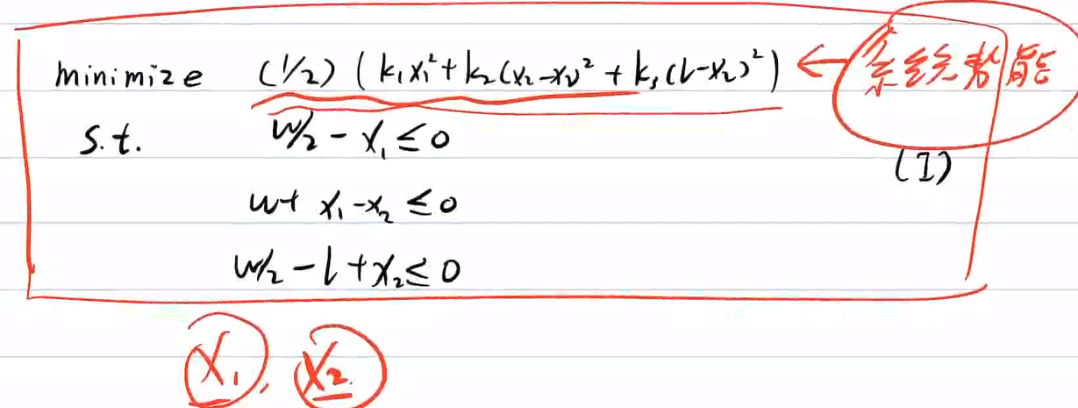 minimize (1/2) (k₁x₁² + k₂(x₂-x₁)² + k₃(l-x₂)²) ← 系统势能
s.t. w/2 - x₁ ≤ 0
(I)
w + x₁ - x₂ ≤ 0
w/2 - l + x₂ ≤ 0
x₁, x₂